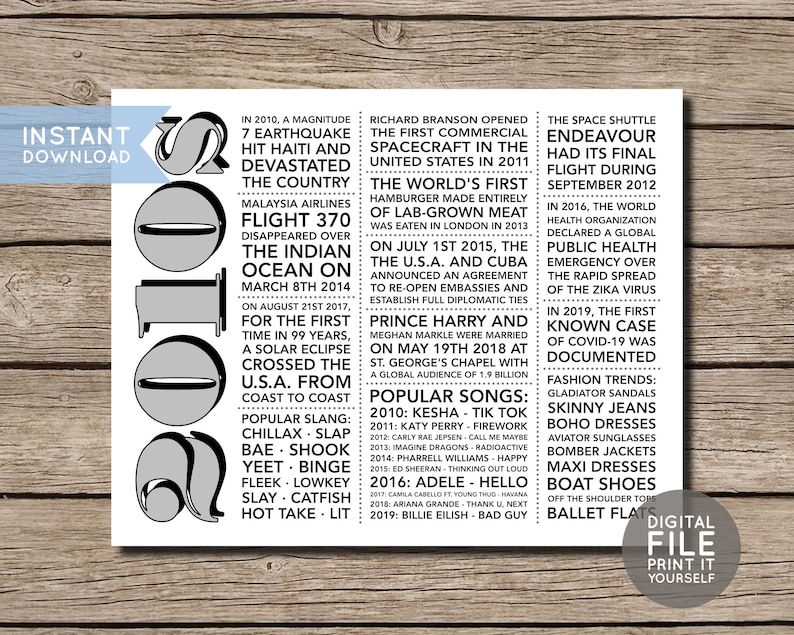 INSTANT
DOWNLOAD
2010S
IN 2010, A MAGNITUDE
7 EARTHQUAKE
HIT HAITI AND
DEVASTATED
THE COUNTRY
MALAYSIA AIRLINES
FLIGHT 370
DISAPPEARED OVER
THE INDIAN
OCEAN ON
MARCH 8TH 2014
ON AUGUST 21ST 2017,
FOR THE FIRST
TIME IN 99 YEARS,
A SOLAR ECLIPSE
CROSSED THE
U.S.A. FROM
COAST TO COAST
POPULAR SLANG:
CHILLAX · SLAP
BAE · SHOOK
YEET · BINGE
FLEEK · LOWKEY
SLAY · CATFISH
HOT TAKE · LIT
RICHARD BRANSON OPENED
THE FIRST COMMERCIAL
SPACECRAFT IN THE
UNITED STATES IN 2011
THE WORLD'S FIRST
HAMBURGER MADE ENTIRELY
OF LAB-GROWN MEAT
WAS EATEN IN LONDON IN 2013
ON JULY 1ST 2015, THE
THE U.S.A. AND CUBA
ANNOUNCED AN AGREEMENT
TO RE-OPEN EMBASSIES AND
ESTABLISH FULL DIPLOMATIC TIES
PRINCE HARRY AND
MEGHAN MARKLE WERE MARRIED
ON MAY 19TH 2018 AT
ST. GEORGE'S CHAPEL WITH
A GLOBAL AUDIENCE OF 1.9 BILLION
POPULAR SONGS:
2010: KESHA - TIK TOK
2011: KATY PERRY - FIREWORK
2012: CARLY RAE JEPSEN - CALL ME MAYBE
2013: IMAGINE DRAGONS - RADIOACTIVE
2014: PHARRELL WILLIAMS - HAPPY
2015: ED SHEERAN - THINKING OUT LOUD
2016: ADELE - HELLO
2017: CAMILA CABELLO FT. YOUNG THUG - HAVANA
2018: ARIANA GRANDE - THANK U, NEXT
2019: BILLIE EILISH - BAD GUY
THE SPACE SHUTTLE
ENDEAVOUR
HAD ITS FINAL
FLIGHT DURING
SEPTEMBER 2012
IN 2016, THE WORLD
HEALTH ORGANIZATION
DECLARED A GLOBAL
PUBLIC HEALTH
EMERGENCY OVER
THE RAPID SPREAD
OF THE ZIKA VIRUS
IN 2019, THE FIRST
KNOWN CASE
OF COVID-19 WAS
DOCUMENTED
FASHION TRENDS:
GLADIATOR SANDALS
SKINNY JEANS
BOHO DRESSES
AVIATOR SUNGLASSES
BOMBER JACKETS
MAXI DRESSES
BOAT SHOES
OFF THE SHOULDER TOPS
BALLET FLATS
DIGITAL
FILE
PRINT IT
YOURSELF